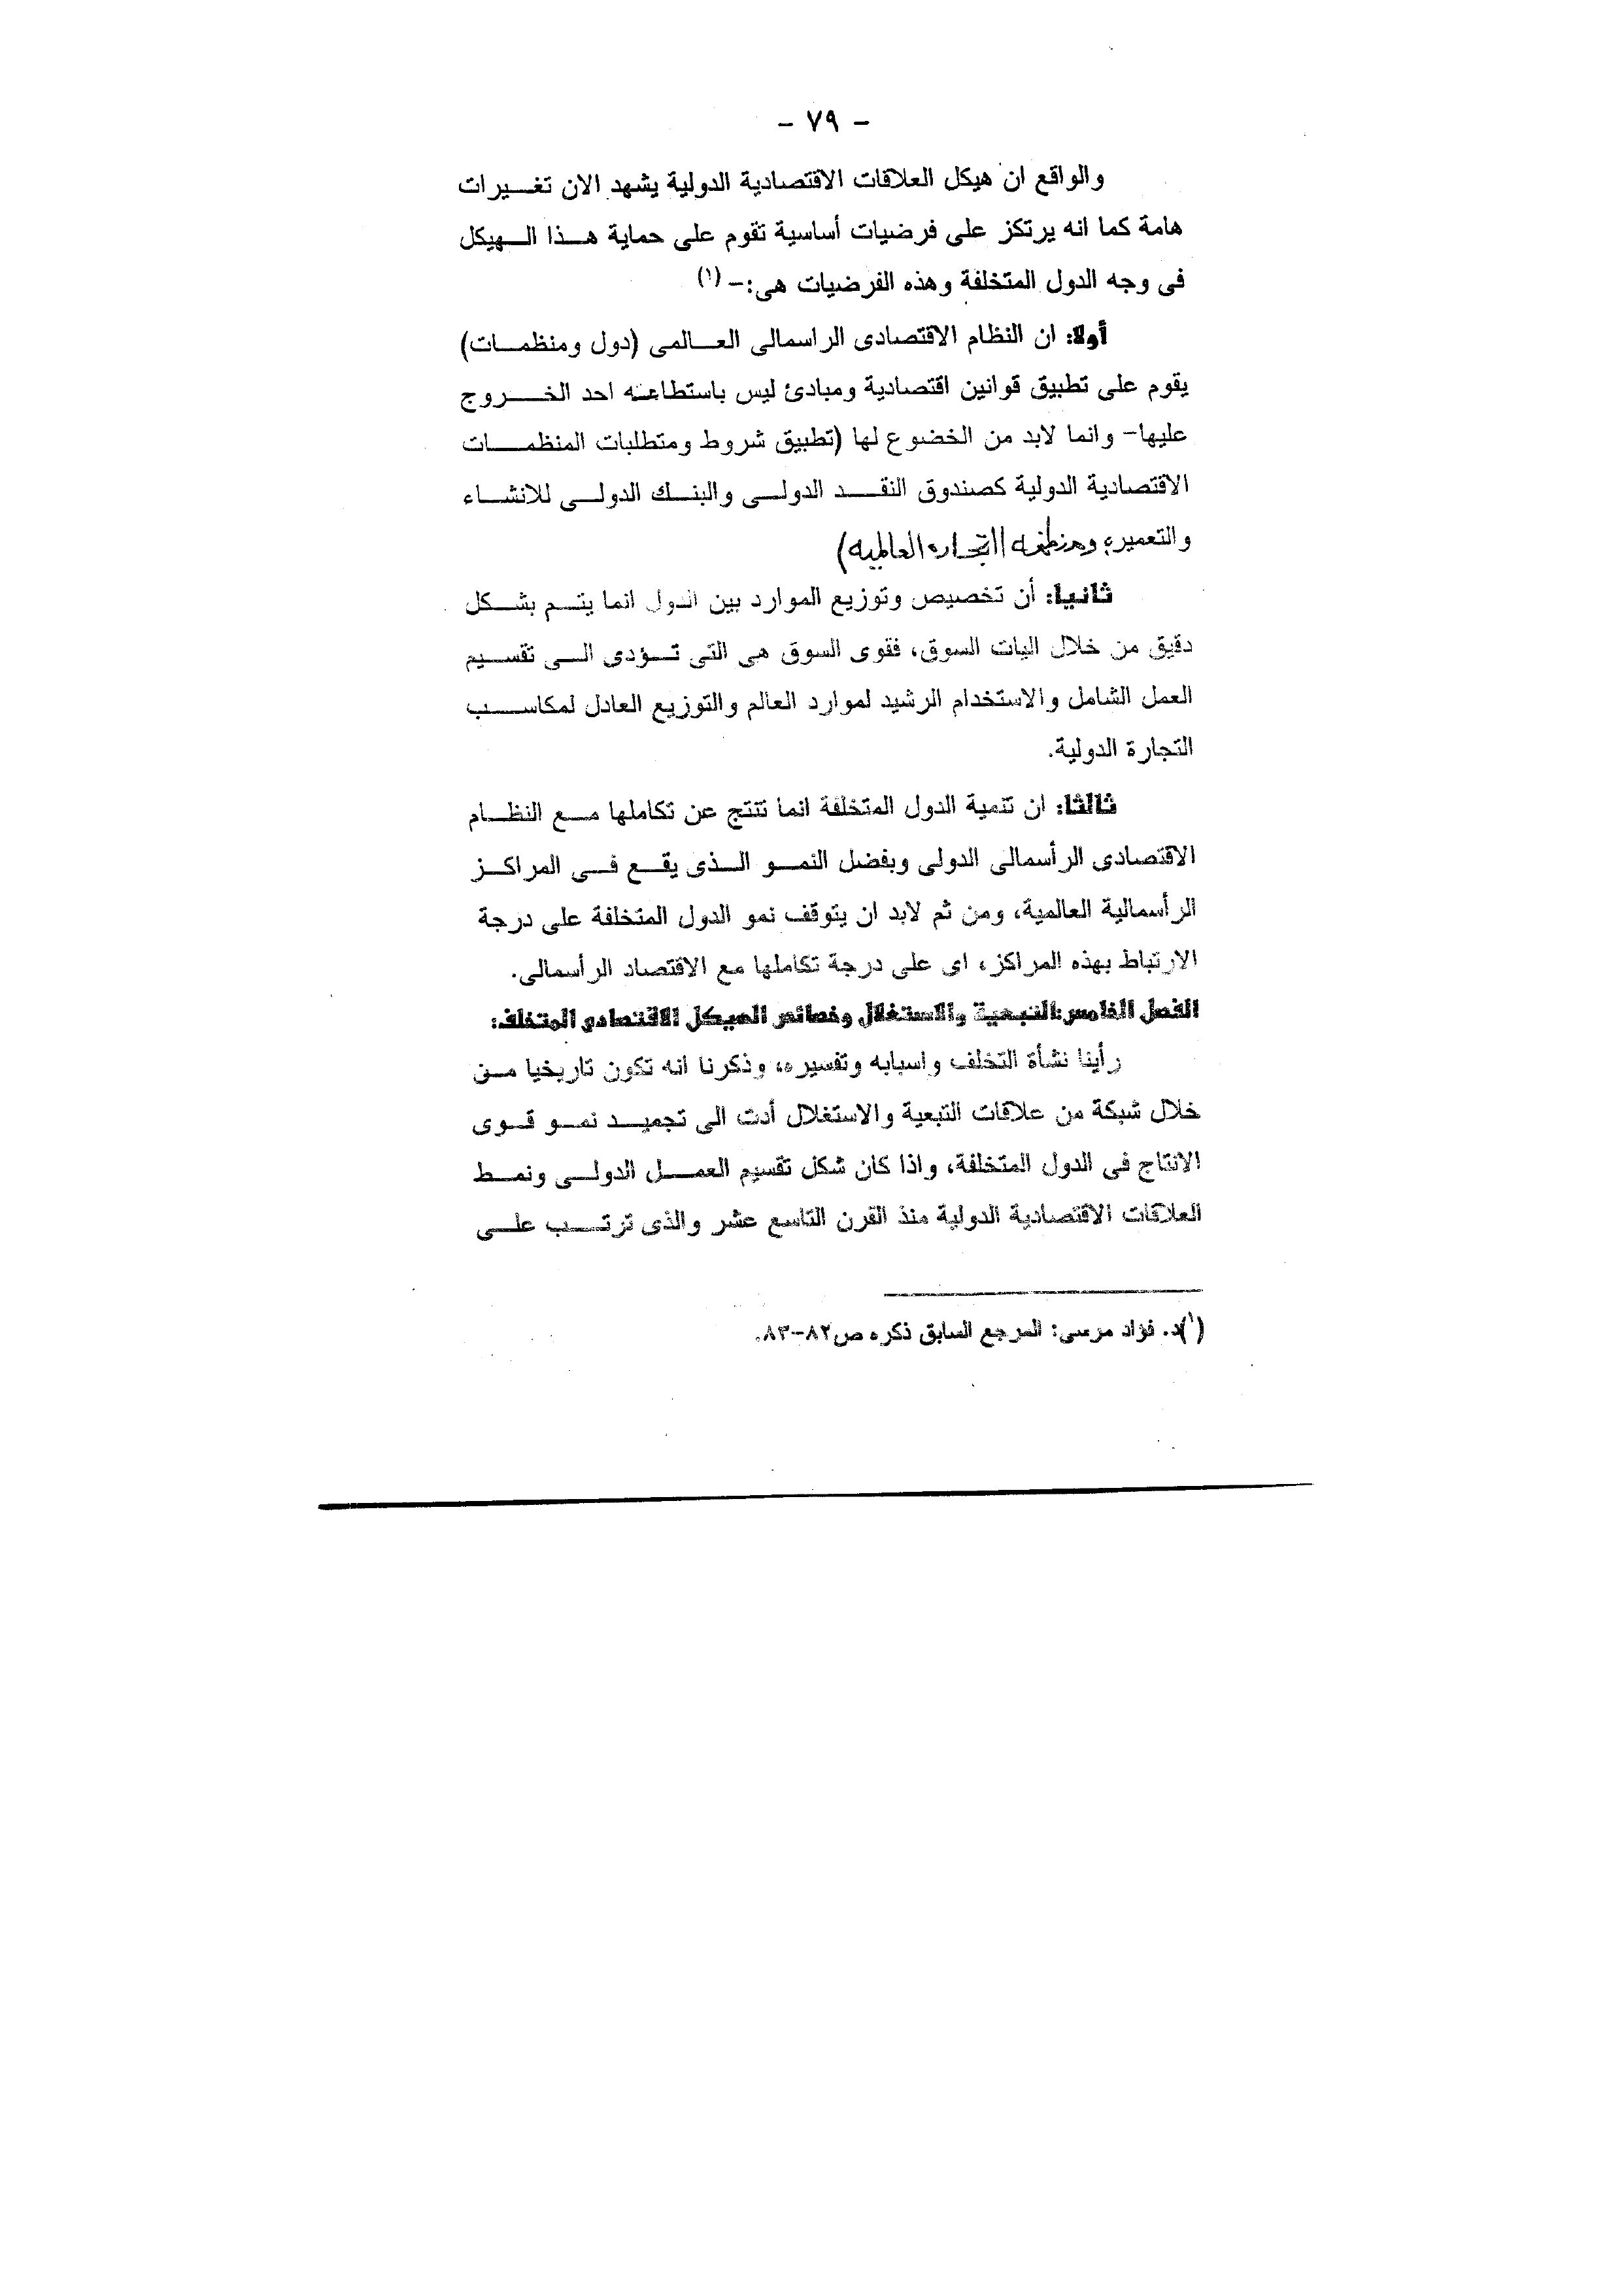 - ٧٩ -
والواقع ان هيكل العلاقات الاقتصادية الدولية يشهد الان تغييرات
هامة كما انه يرتكز على فرضيات أساسية تقوم على حماية هذا الهيكل
فى وجه الدول المتخلفة وهذه الفرضيات هى:- (١)
أولا: ان النظام الاقتصادى الراسمالى العالمى (دول ومنظمات)
يقوم على تطبيق قوانين اقتصادية ومبادئ ليس باستطاعته احد الخروج
عليها- وانما لابد من الخضوع لها (تطبيق شروط ومتطلبات المنظمات
الاقتصادية الدولية كصندوق النقد الدولى والبنك الدولى للانشاء
والتعمير، ومنظمه التجاره العالميه)
ثانيا: أن تخصيص وتوزيع الموارد بين الدول انما يتم بشكل
دقيق من خلال اليات السوق، فقوى السوق هى التى تؤدى الى تقسيم
العمل الشامل والاستخدام الرشيد لموارد العالم والتوزيع العادل لمكاسب
التجارة الدولية.
ثالثا: ان تنمية الدول المتخلفة انما تنتج عن تكاملها مع النظام
الاقتصادى الرأسمالى الدولى وبفضل النمو الذى يقع فى المراكز
الرأسمالية العالمية، ومن ثم لابد ان يتوقف نمو الدول المتخلفة على درجة
الارتباط بهذه المراكز، اى على درجة تكاملها مع الاقتصاد الرأسمالى.
الفصل الخامس: التبعية والاستغلال وخصائص الهيكل الاقتصادى المتخلف:
رأينا نشأة التخلف واسبابه وتفسيره، وذكرنا انه تكون تاريخيا من
خلال شبكة من علاقات التبعية والاستغلال أدت الى تجميد نمو قوى
الانتاج فى الدول المتخلفة، واذا كان شكل تقسيم العمل الدولى ونمط
العلاقات الاقتصادية الدولية منذ القرن التاسع عشر والذى ترتب على
(١)د. فؤاد مرسى: المرجع السابق ذكره ص٨٢-٨٣.